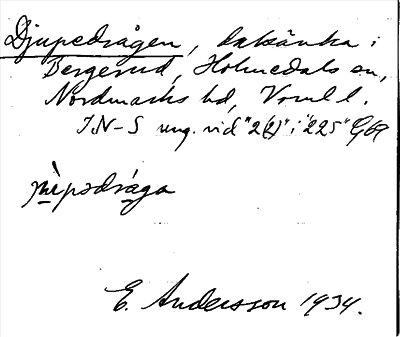 Djupedrågen, dalsänka i
Bergerud, Holmedals sn,
Nordmarks hd, Vrml l.
IN-S ung. vid "2(2)" i "225" G69
E. Andersson 1934.